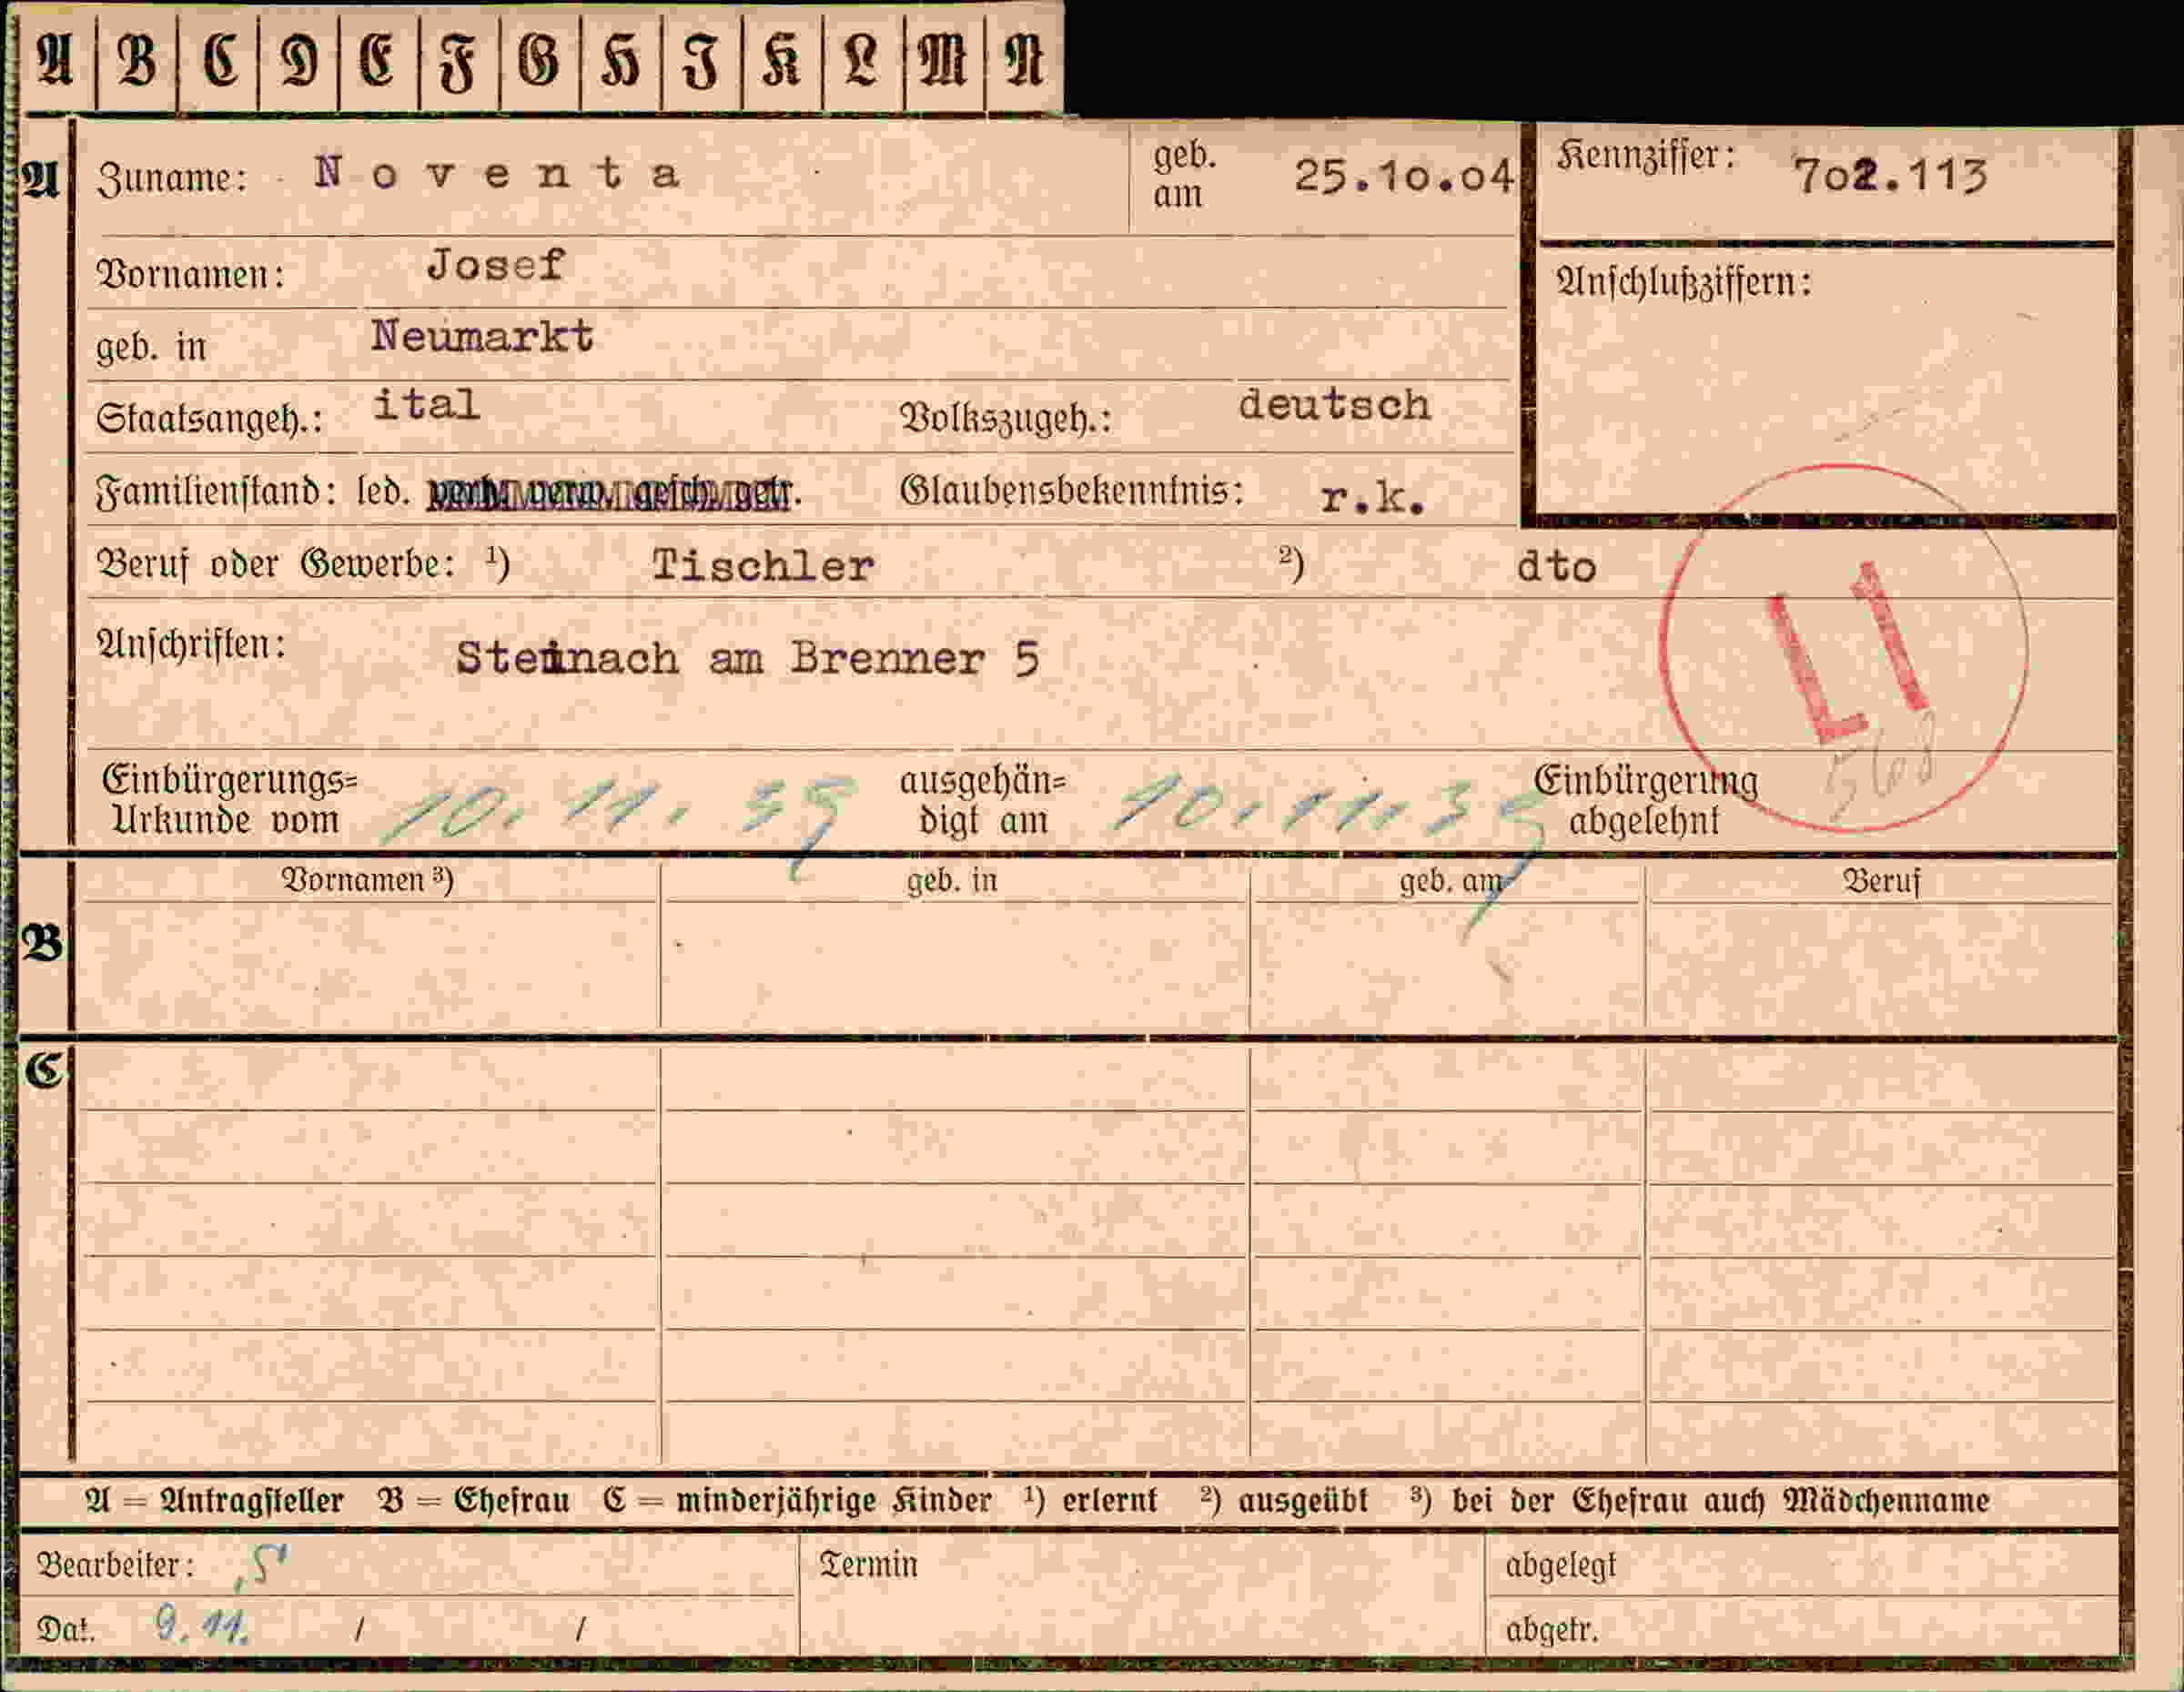 A B C D E F G H I K L M N
A Zuname: N o v e n t a geb. am 25.10.04 Kennziffer: 702.113
Vornamen: Josef Anschlußziffern:
geb. in Neumarkt
Staatsangeh.: ital Volkszugeh.: deutsch
Familienstand: led. verh. verw. gesch. getr. Glaubensbekenntnis: r.k.
Beruf oder Gewerbe: ¹) Tischler ²) dto
Anschriften: Steinach am Brenner 5
L1
568
Einbürgerungs= Urkunde vom 10. 11. 39 ausgehän= digt am 10. 11. 39 Einbürgerung abgelehnt
B Vornamen ³) geb. in geb. am Beruf
C
A = Antragsteller B = Ehefrau C = minderjährige Kinder ¹) erlernt ²) ausgeübt ³) bei der Ehefrau auch Mädchenname
Bearbeiter: Termin abgelegt
Dat. 9. 11. / / abgetr.